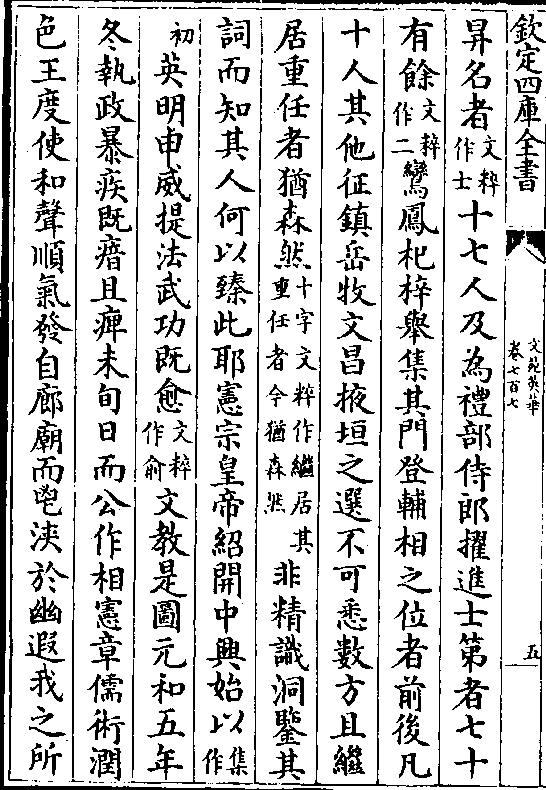 欽定四庫全書
文苑英華
卷七百七
五
昇名者文粹作士十七人及為禮部侍郎擢進士第者七十
有餘文粹作二鸞鳳杞梓舉集其門登輔相之位者前後凡
十人其他征鎮岳牧文昌掖垣之選不可悉數方且繼
居重任者猶森然十字文粹作繼居其重任者今猶森然非精識洞鑒其
詞而知其人何以臻此耶憲宗皇帝紹開中興始以集作
初英明申威提法武功既愈文粹作俞文教是圖元和五年
冬執政暴疾既瘖且痺未旬日而公作相憲章儒術潤
色王度使和聲順氣發自廊廟而鬯浹於幽遐我之所